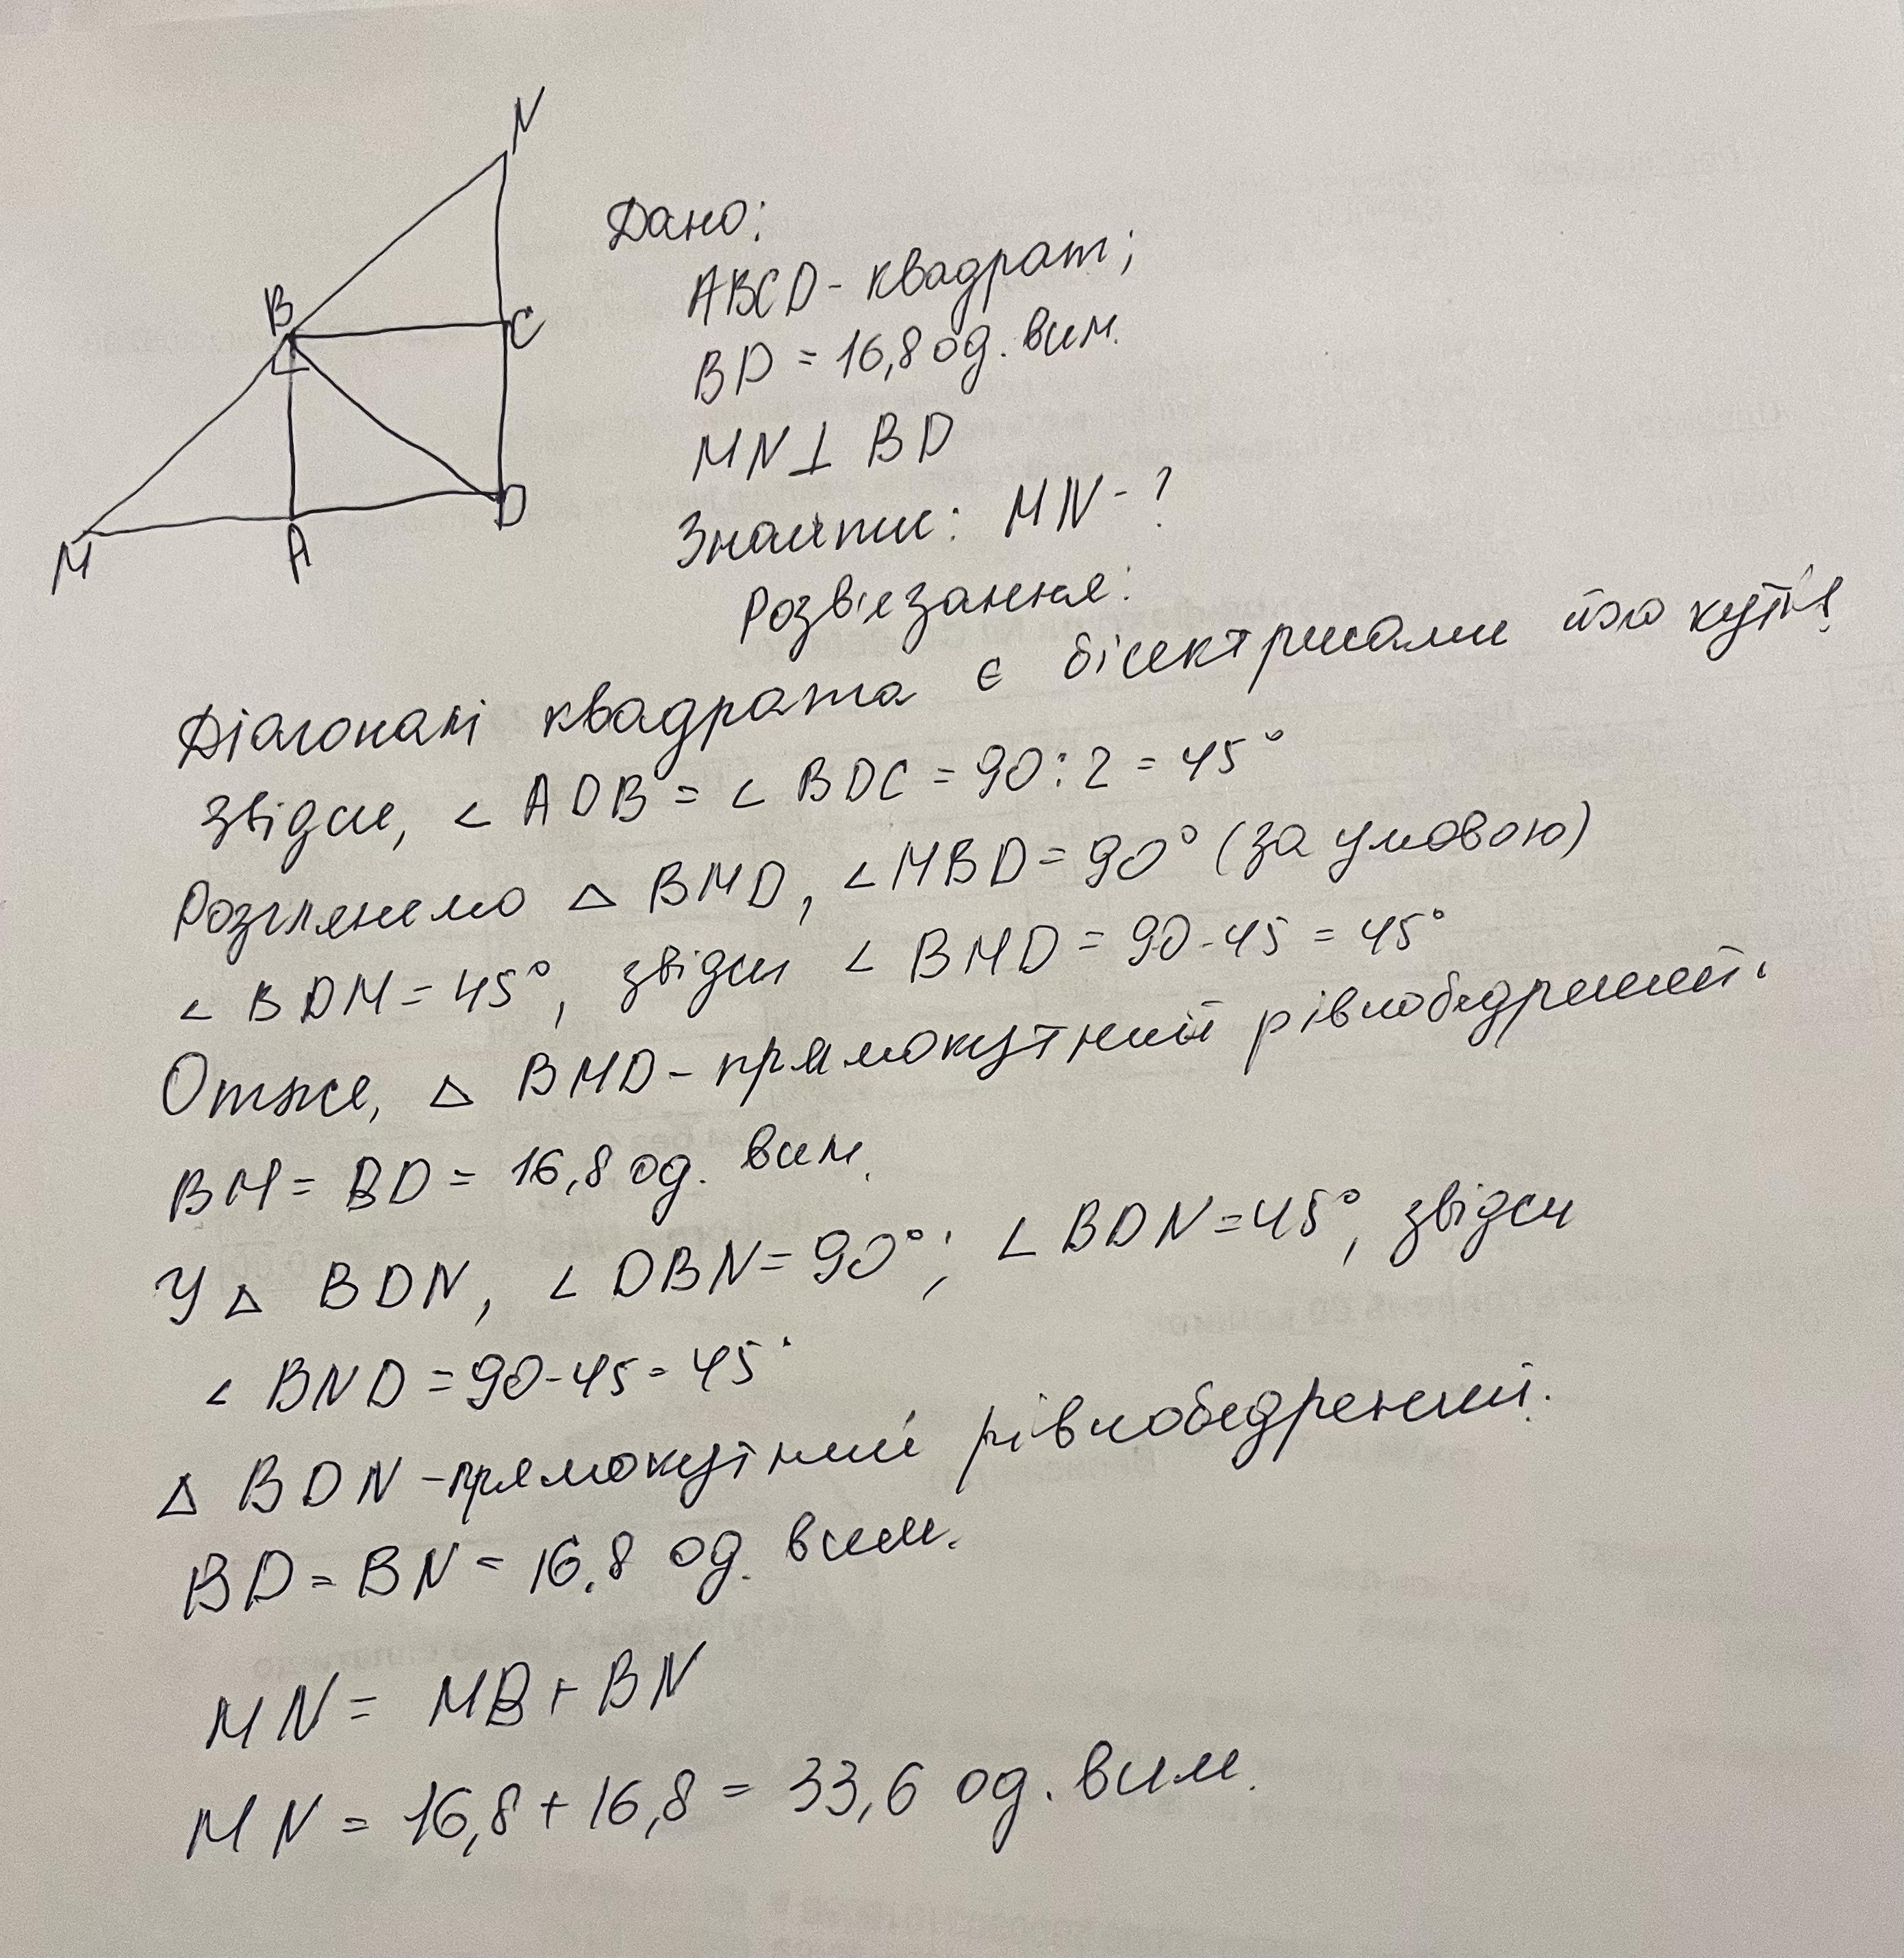 N
B
C
D
M
A
Дано:
ABCD - квадрат;
BD = 16,8 од. вим.
MN ⊥ BD
Знайти: MN - ?
Розв'язання:
Діагоналі квадрата є бісектрисами його кутів,
звідси, ∠ ADB = ∠ BDC = 90 : 2 = 45°
Розглянемо △ BMD, ∠MBD = 90° (за умовою)
∠ BDM = 45°, звідси ∠ BMD = 90 - 45 = 45°
Отже, △ BMD - прямокутний рівнобедрений.
BM = BD = 16,8 од. вим.
У △ BDN, ∠ DBN = 90°; ∠ BDN = 45°, звідси
∠ BND = 90 - 45 = 45°
△ BDN - прямокутний рівнобедрений.
BD = BN = 16,8 од. вим.
MN = MB + BN
MN = 16,8 + 16,8 = 33,6 од. вим.